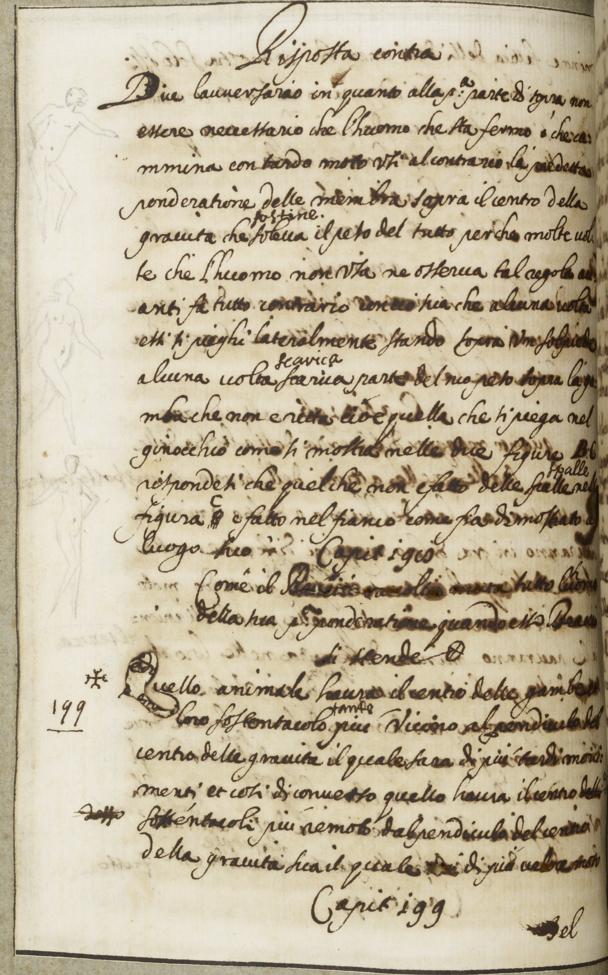 Risposta contra
Dice lauuersario in quanto alla p.a parte di sopra non
essere necessario che l'huomo che sta fermo o che ca
mmina con tardo moto usi al contrario la predetta
ponderatione delle membra sopra il centro della
sostine
grauita che solleua il peso del tutto perche molte uol
te che l'huomo non usa ne osserua tal regola an
anti fa tutto contrario che alcuna uolta
essi si pieghi lateralmente stando sopra un sol piede
scarica
alcuna uolta scarica parte del suo peso sopra la ga
mba che non e retta cioe quella che si piega nel
ginocchio come si mostra nelle due figure B C
spalle
rispondesi che quel che non e fatto delle spalle nella
figura C e fatto nel fianco come fia dimostrato a
luogo suo
Capit 190
Come il tutto l'huomo
della sua p.a ponderatione quando esso Braccio
si stende
199
Quello animale haura il centro delle gambe
tanto
loro sostentacolo piu uicino al pendiculo del
centro della grauita il quale sara di piu tardi moui
menti et cosi di conuerso quello haura il centro delli
sostentacoli piu remoto dal pendiculo del centro
della grauita sua il quale di piu ueloce moto
Capit 199
Del